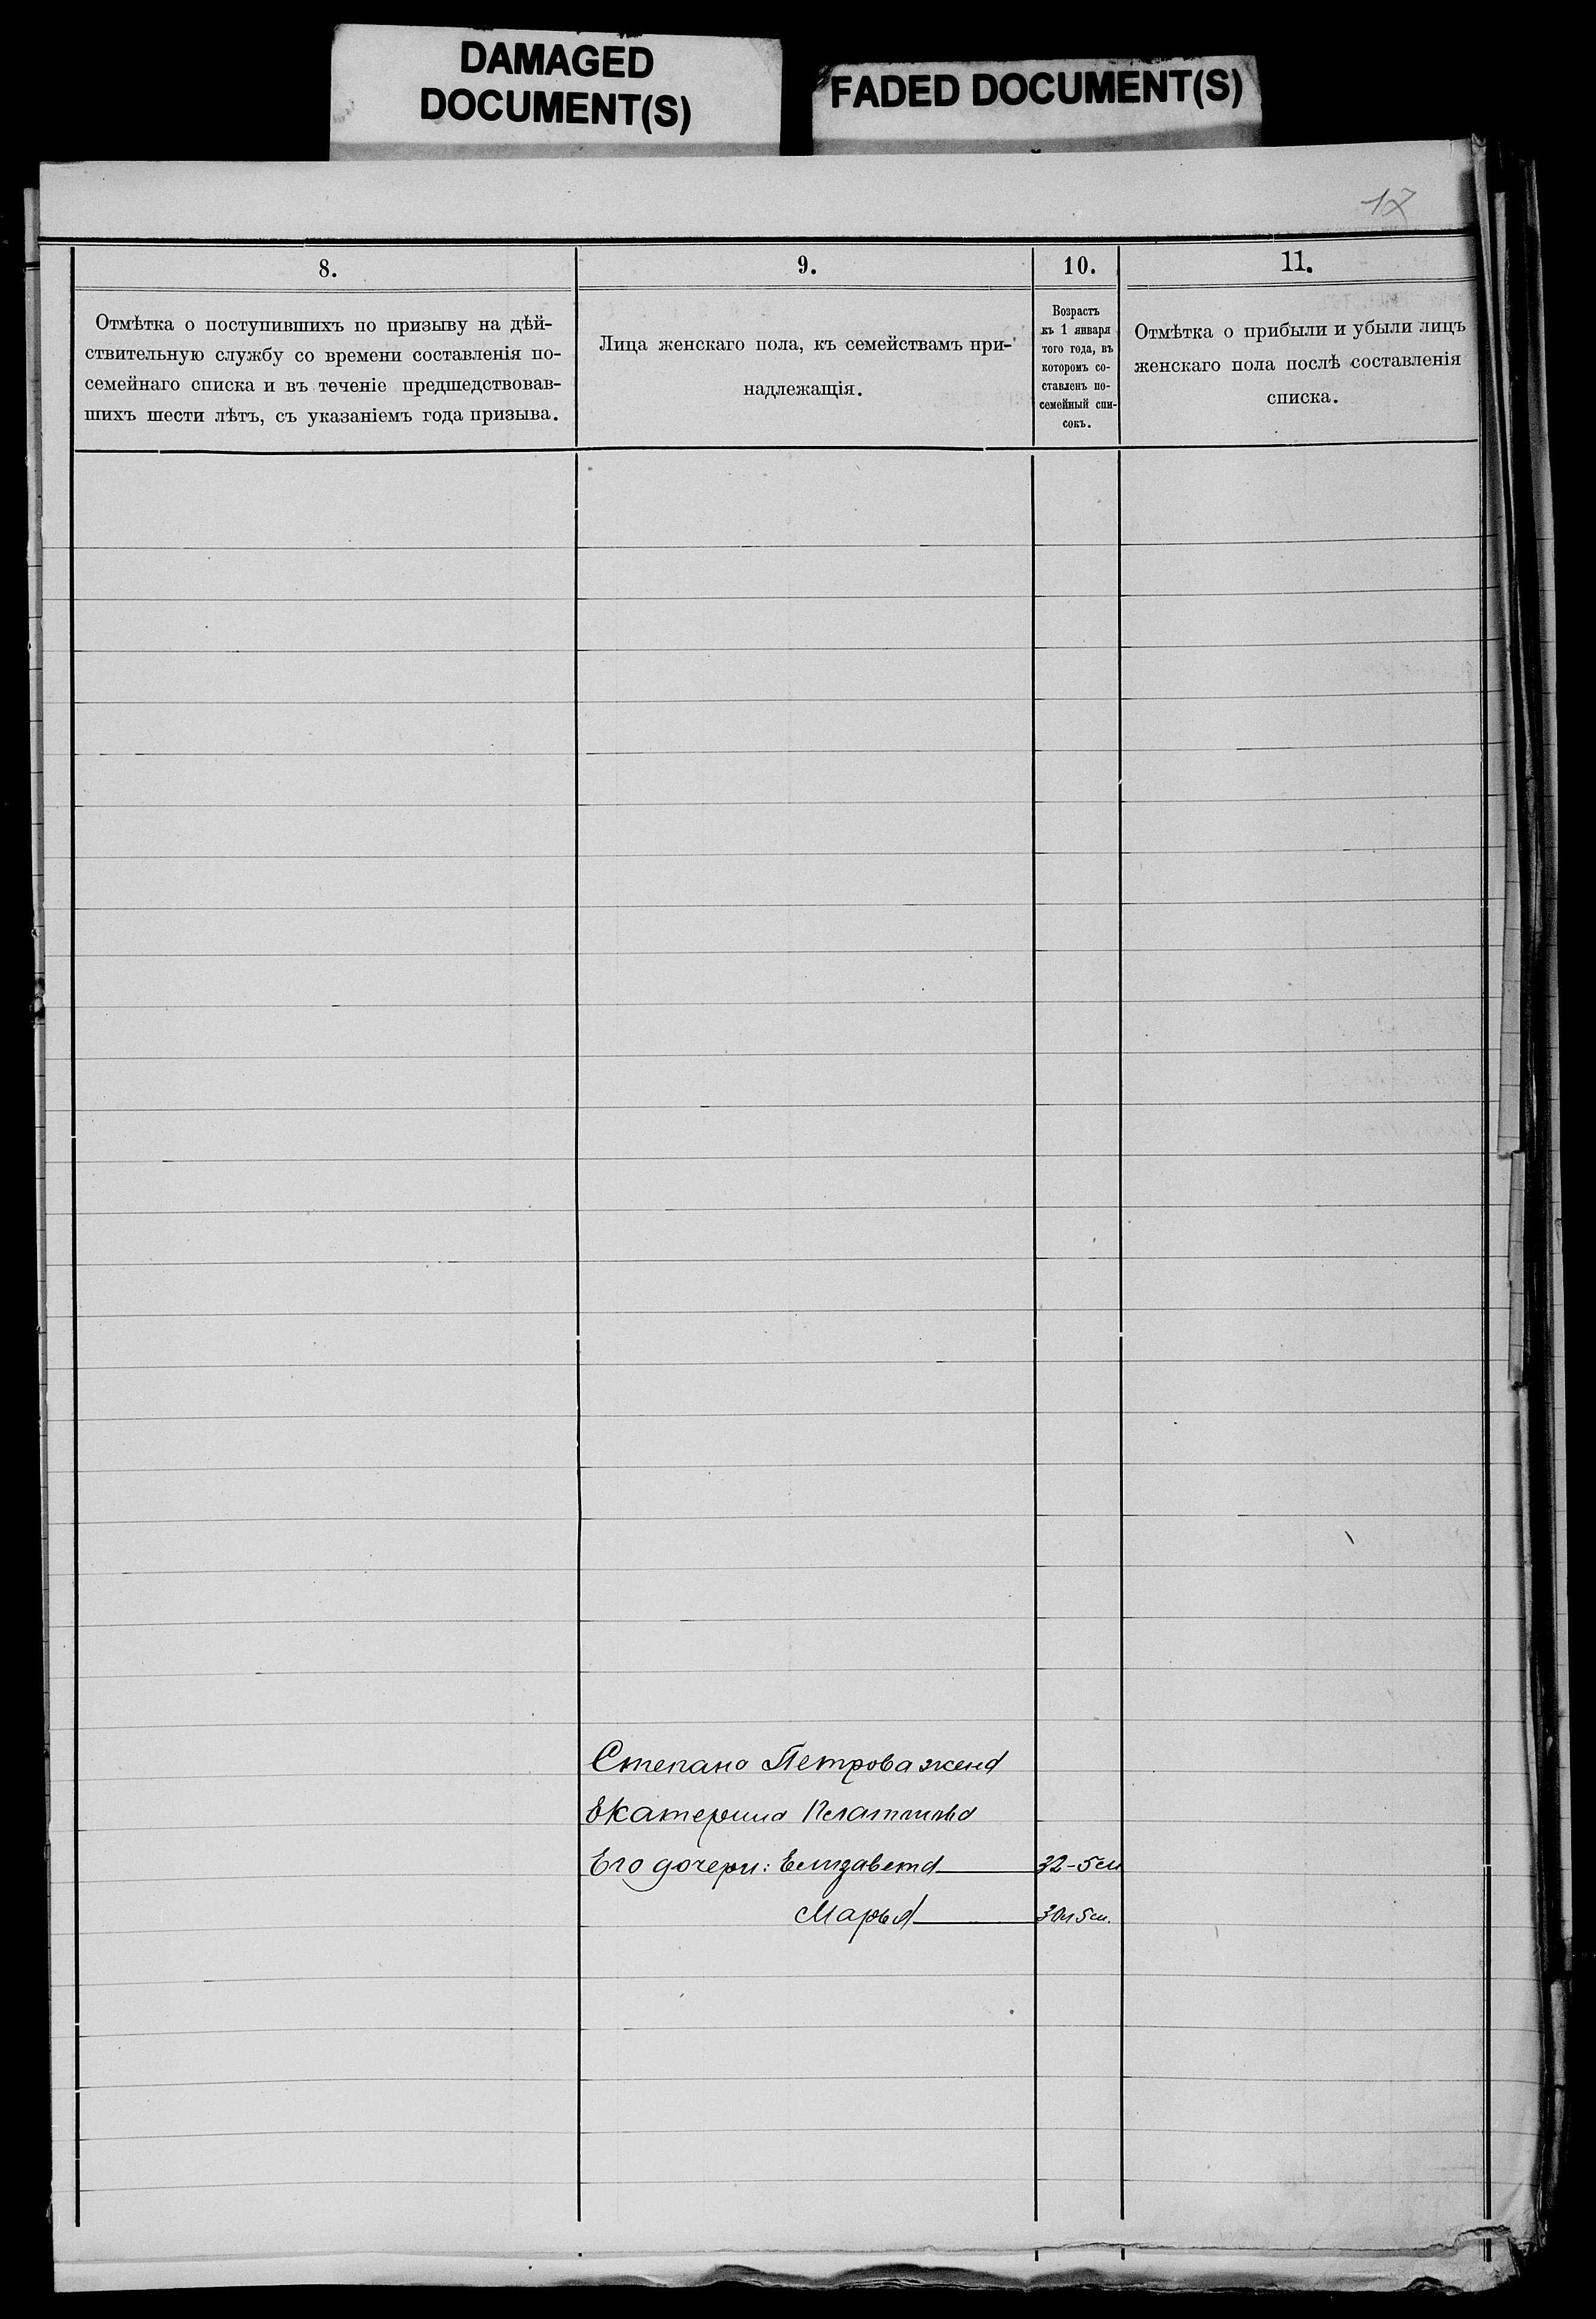 DAMAGED
DOCUMENT(S)
FADED DOCUMENT(S)
17
8.
Отмѣтка о поступившихъ по призыву на дѣй-
ствительную службу со времени составленія по-
семейнаго списка и въ теченіе предшедствовав-
шихъ шести лѣтъ, съ указаніемъ года призыва.
9.
Лица женскаго пола, къ семействамъ при-
надлежащія.
10.
Возрастъ
къ 1 января
того года, въ
которомъ со-
ставленъ по-
семейный спи-
сокъ.
11.
Отмѣтка о прибыли и убыли лицъ
женскаго пола послѣ составленія
списка.
Степана Петрова жена
Екатерина
Его дочери: Елизавета 32-5 м
Марья 5 м.